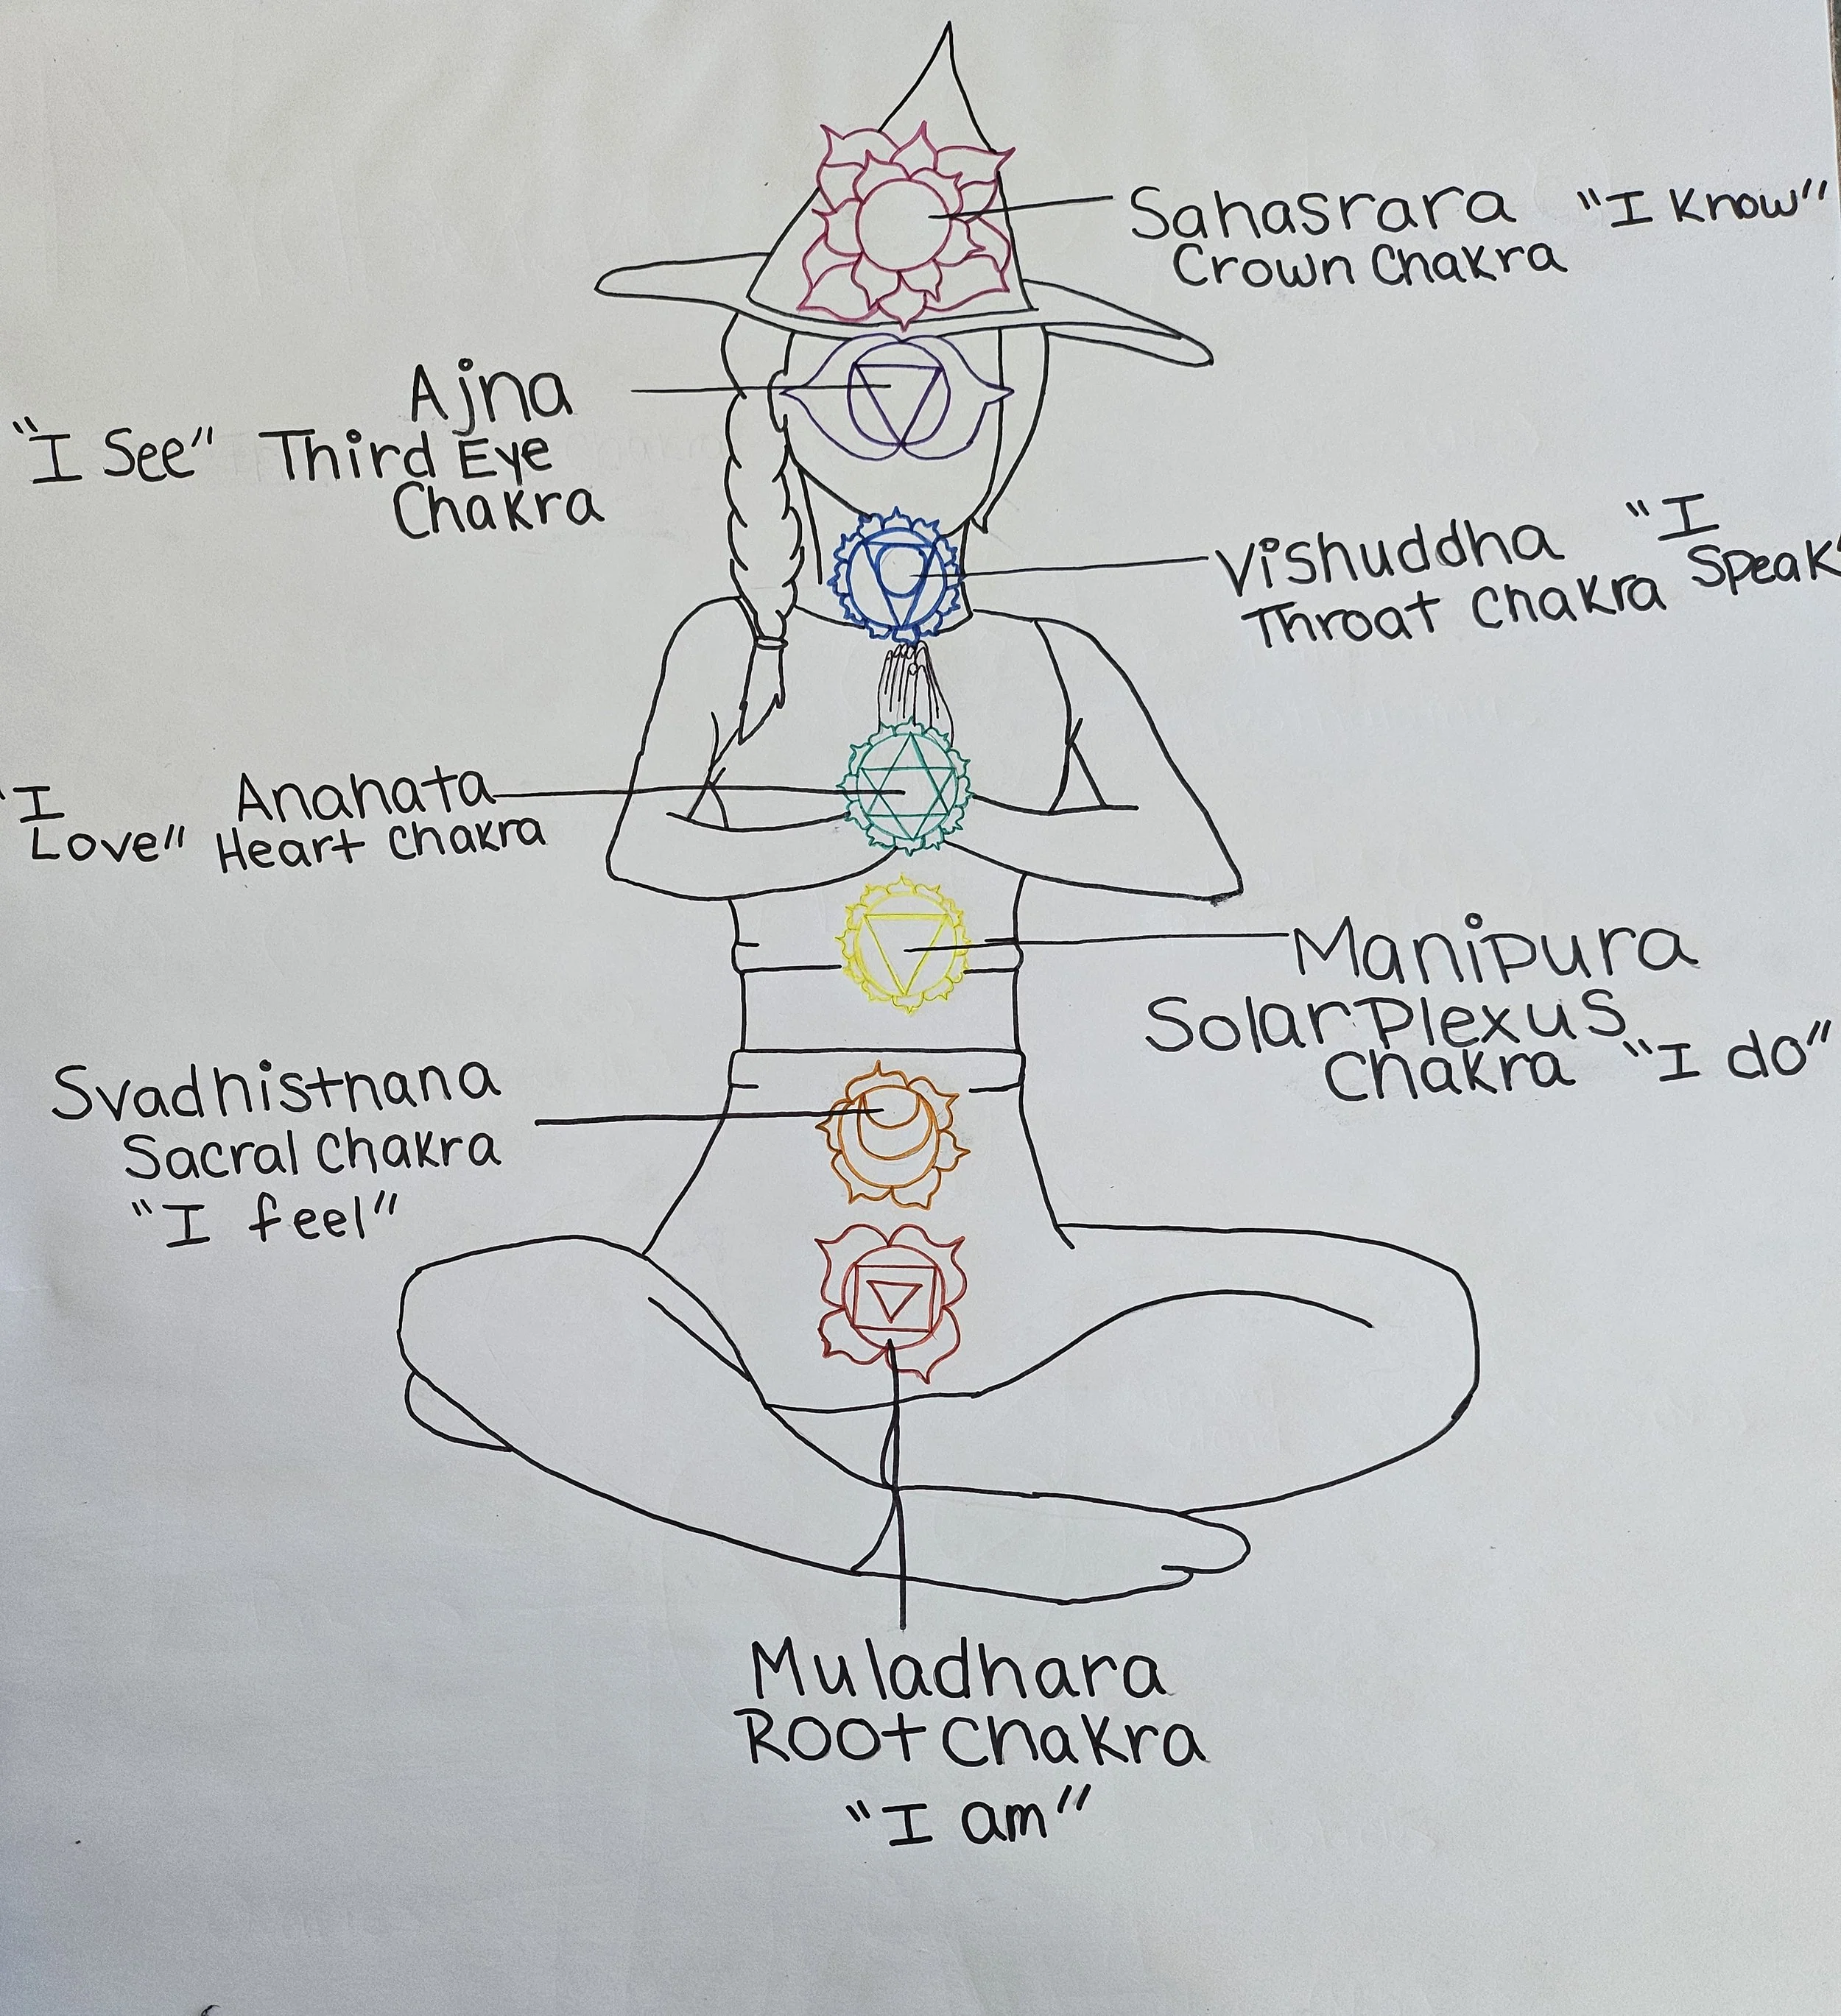 Sahasrara "I Know"
Crown Chakra
Ajna
"I See" Third Eye
Chakra
Vishuddha "I
Throat Chakra Speak"
"I Anahata
Love" Heart Chakra
Manipura
Solar Plexus
Chakra "I do"
Svadhisthana
Sacral Chakra
"I feel"
Muladhara
Root Chakra
"I am"